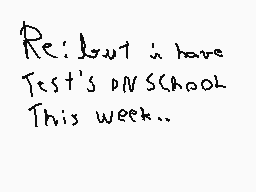 Re: but i have
Test's on School
This week..